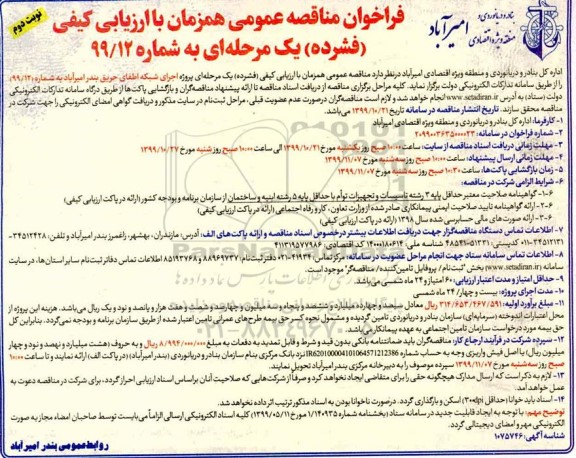 نوبت دوم
فراخوان مناقصه عمومی همزمان با ارزیابی کیفی
(فشرده) یک مرحله‌ای به شماره ۹۹/۱۲
بنادر و دریانوردی و
منطقه ویژه اقتصادی
امیرآباد
اداره کل بنادر و دریانوردی و منطقه ویژه اقتصادی امیرآباد درنظر دارد مناقصه عمومی همزمان با ارزیابی کیفی (فشرده) یک مرحله‌ای پروژه اجرای شبکه اطفای حریق بندر امیرآباد به شماره (۹۹/۱۲)
را از طریق سامانه تدارکات الکترونیکی دولت برگزار نماید. کلیه مراحل برگزاری مناقصه از دریافت اسناد مناقصه تا ارائه پیشنهاد مناقصه‌گران و بازگشایی پاکت‌ها از طریق درگاه سامانه تدارکات الکترونیکی
دولت (ستاد) به آدرس www.setadiran.ir انجام خواهد شد و لازم است مناقصه‌گران درصورت عدم عضویت قبلی، مراحل ثبت‌نام در سایت مذکور و دریافت گواهی امضای الکترونیکی را جهت شرکت در
مناقصه محقق سازند. تاریخ انتشار مناقصه در سامانه تاریخ ۱۳۹۹/۱۰/۲۱ می‌باشد.
۱- کارفرما: اداره کل بنادر و دریانوردی و منطقه ویژه اقتصادی امیرآباد
۲- شماره فراخوان در سامانه:
۳- مهلت زمانی دریافت اسناد مناقصه از سایت: ساعت ۱۰:۰۰ صبح روز یکشنبه مورخ ۱۳۹۹/۱۰/۲۱ الی ساعت ۱۰:۰۰ صبح روز شنبه مورخ ۱۳۹۹/۱۰/۲۷
۴- مهلت زمانی ارسال پیشنهاد: ساعت ۱۰:۰۰ صبح روز سه‌شنبه مورخ ۱۳۹۹/۱۱/۰۷
۵- زمان بازگشایی پاکت‌ها: ساعت ۱۰:۳۰ صبح روز سه‌شنبه مورخ ۱۳۹۹/۱۱/۰۷
۶- شرایط الزامی شرکت در مناقصه:
۶-۱- گواهینامه صلاحیت معتبر حداقل پایه ۳ رشته تاسیسات و تجهیزات توأم با حداقل پایه ۵ رشته ابنیه و ساختمان از سازمان برنامه و بودجه کشور (ارائه در پاکت ارزیابی کیفی)
۶-۲- ارائه گواهینامه تایید صلاحیت ایمنی پیمانکاری صادر شده از وزارت تعاون، کار و رفاه اجتماعی (ارائه در پاکت ارزیابی کیفی)
۶-۳- ارائه صورت های مالی حسابرسی شده سال ۱۳۹۸ (ارائه در پاکت ارزیابی کیفی)
۷- اطلاعات تماس دستگاه مناقصه‌گزار جهت دریافت اطلاعات بیشتر درخصوص اسناد مناقصه و ارائه پاکت‌های الف: آدرس: مازندران، بهشهر، زاغمرز بندر امیرآباد و تلفن:
۸- اطلاعات تماس سامانه ستاد جهت انجام مراحل عضویت در سامانه: مرکز تماس: ۴۱۹۳۴-۰۲۱ دفتر ثبت‌نام: ۸۸۹۶۹۷۳۷ و ۸۵۱۹۳۷۶۸ اطلاعات تماس دفاتر ثبت‌نام سایر استان‌ها، در سایت
سامانه (www.setadiran.ir) بخش "ثبت‌نام / پروفایل تامین‌کننده/ مناقصه‌گر" موجود است.
۹- حداقل امتیاز و مدت اعتبار ارزیابی: ۶۰ امتیاز و ۲۴ ماه شمسی می‌باشد.
۱۰- مدت اجرای پروژه: بیست و چهار/ ۲۴ ماه شمسی
۱۱- مبلغ برآورد اولیه: ریال معادل سیصد و چهارده میلیارد و ششصد و پنجاه و سه میلیون و چهارصد و شصت و هفت هزار و پانصد و نود و یک ریال می‌باشد. هزینه این پروژه از
محل اعتبارات اندوخته (سرمایه‌ای) سازمان بنادر و دریانوردی تامین گردیده و مشمول نحوه کسر حق بیمه طرح‌های عمرانی تامین اعتبار شده از طریق سازمان برنامه و بودجه نمی‌گردد. بنابراین کل
حق بیمه مورد درخواست سازمان تامین اجتماعی به عهده پیمانکار می‌باشد.
۱۲- سپرده شرکت در فرآیند ارجاع کار: مناقصه‌گران باید ضمانتنامه بانکی بدون قید و شرط و قابل تمدید به دفعات به مبلغ ۸/۹۹۴/۰۰۰/۰۰۰ ریال و به حروف (هشت میلیارد و نهصد و نود و چهار
میلیون ریال) یا اصل فیش واریزی وجه به حساب شماره IR620100004101064571212386 نزد بانک مرکزی بنام سازمان بنادر و دریانوردی (بندر امیرآباد) (در پاکت الف) ارائه نمایند و تا ساعت ۱۰:۰۰
صبح روز سه‌شنبه مورخ ۱۳۹۹/۱۱/۰۷ سپرده موصوف را به دبیرخانه مرکزی بندر امیرآباد تحویل نمایند.
۱۳- لازم به ذکر است که ارسال مدارک هیچگونه حقی را برای متقاضی ایجاد نخواهد کرد و صرفا از شرکت‌هایی که صلاحیت آنان براساس اسناد ارزیابی احراز گردد، برای شرکت در مناقصه دعوت به
عمل خواهد آمد.
۱۴- اسناد باید خوانا (حداقل ۳۰۰dpi) اسکن و بارگذاری گردد. درصورت ناخوانا بودن به اسناد مذکور ترتیب اثر داده نخواهد شد.
توضیح مهم: با توجه به ایجاد قابلیت جدید در سامانه ستاد (بخشنامه شماره ۱/۱۴۰۹۳۵ مورخ ۱۳۹۹/۰۵/۱۱) کلیه اسناد الکترونیکی ارسالی الزاماً می‌بایست توسط صاحبان امضاء مجاز به صورت
الکترونیکی مهر و امضای دیجیتالی گردد.
شناسه آگهی: ۱۰۷۵۷۴۶
روابط‌عمومی بندر امیرآباد